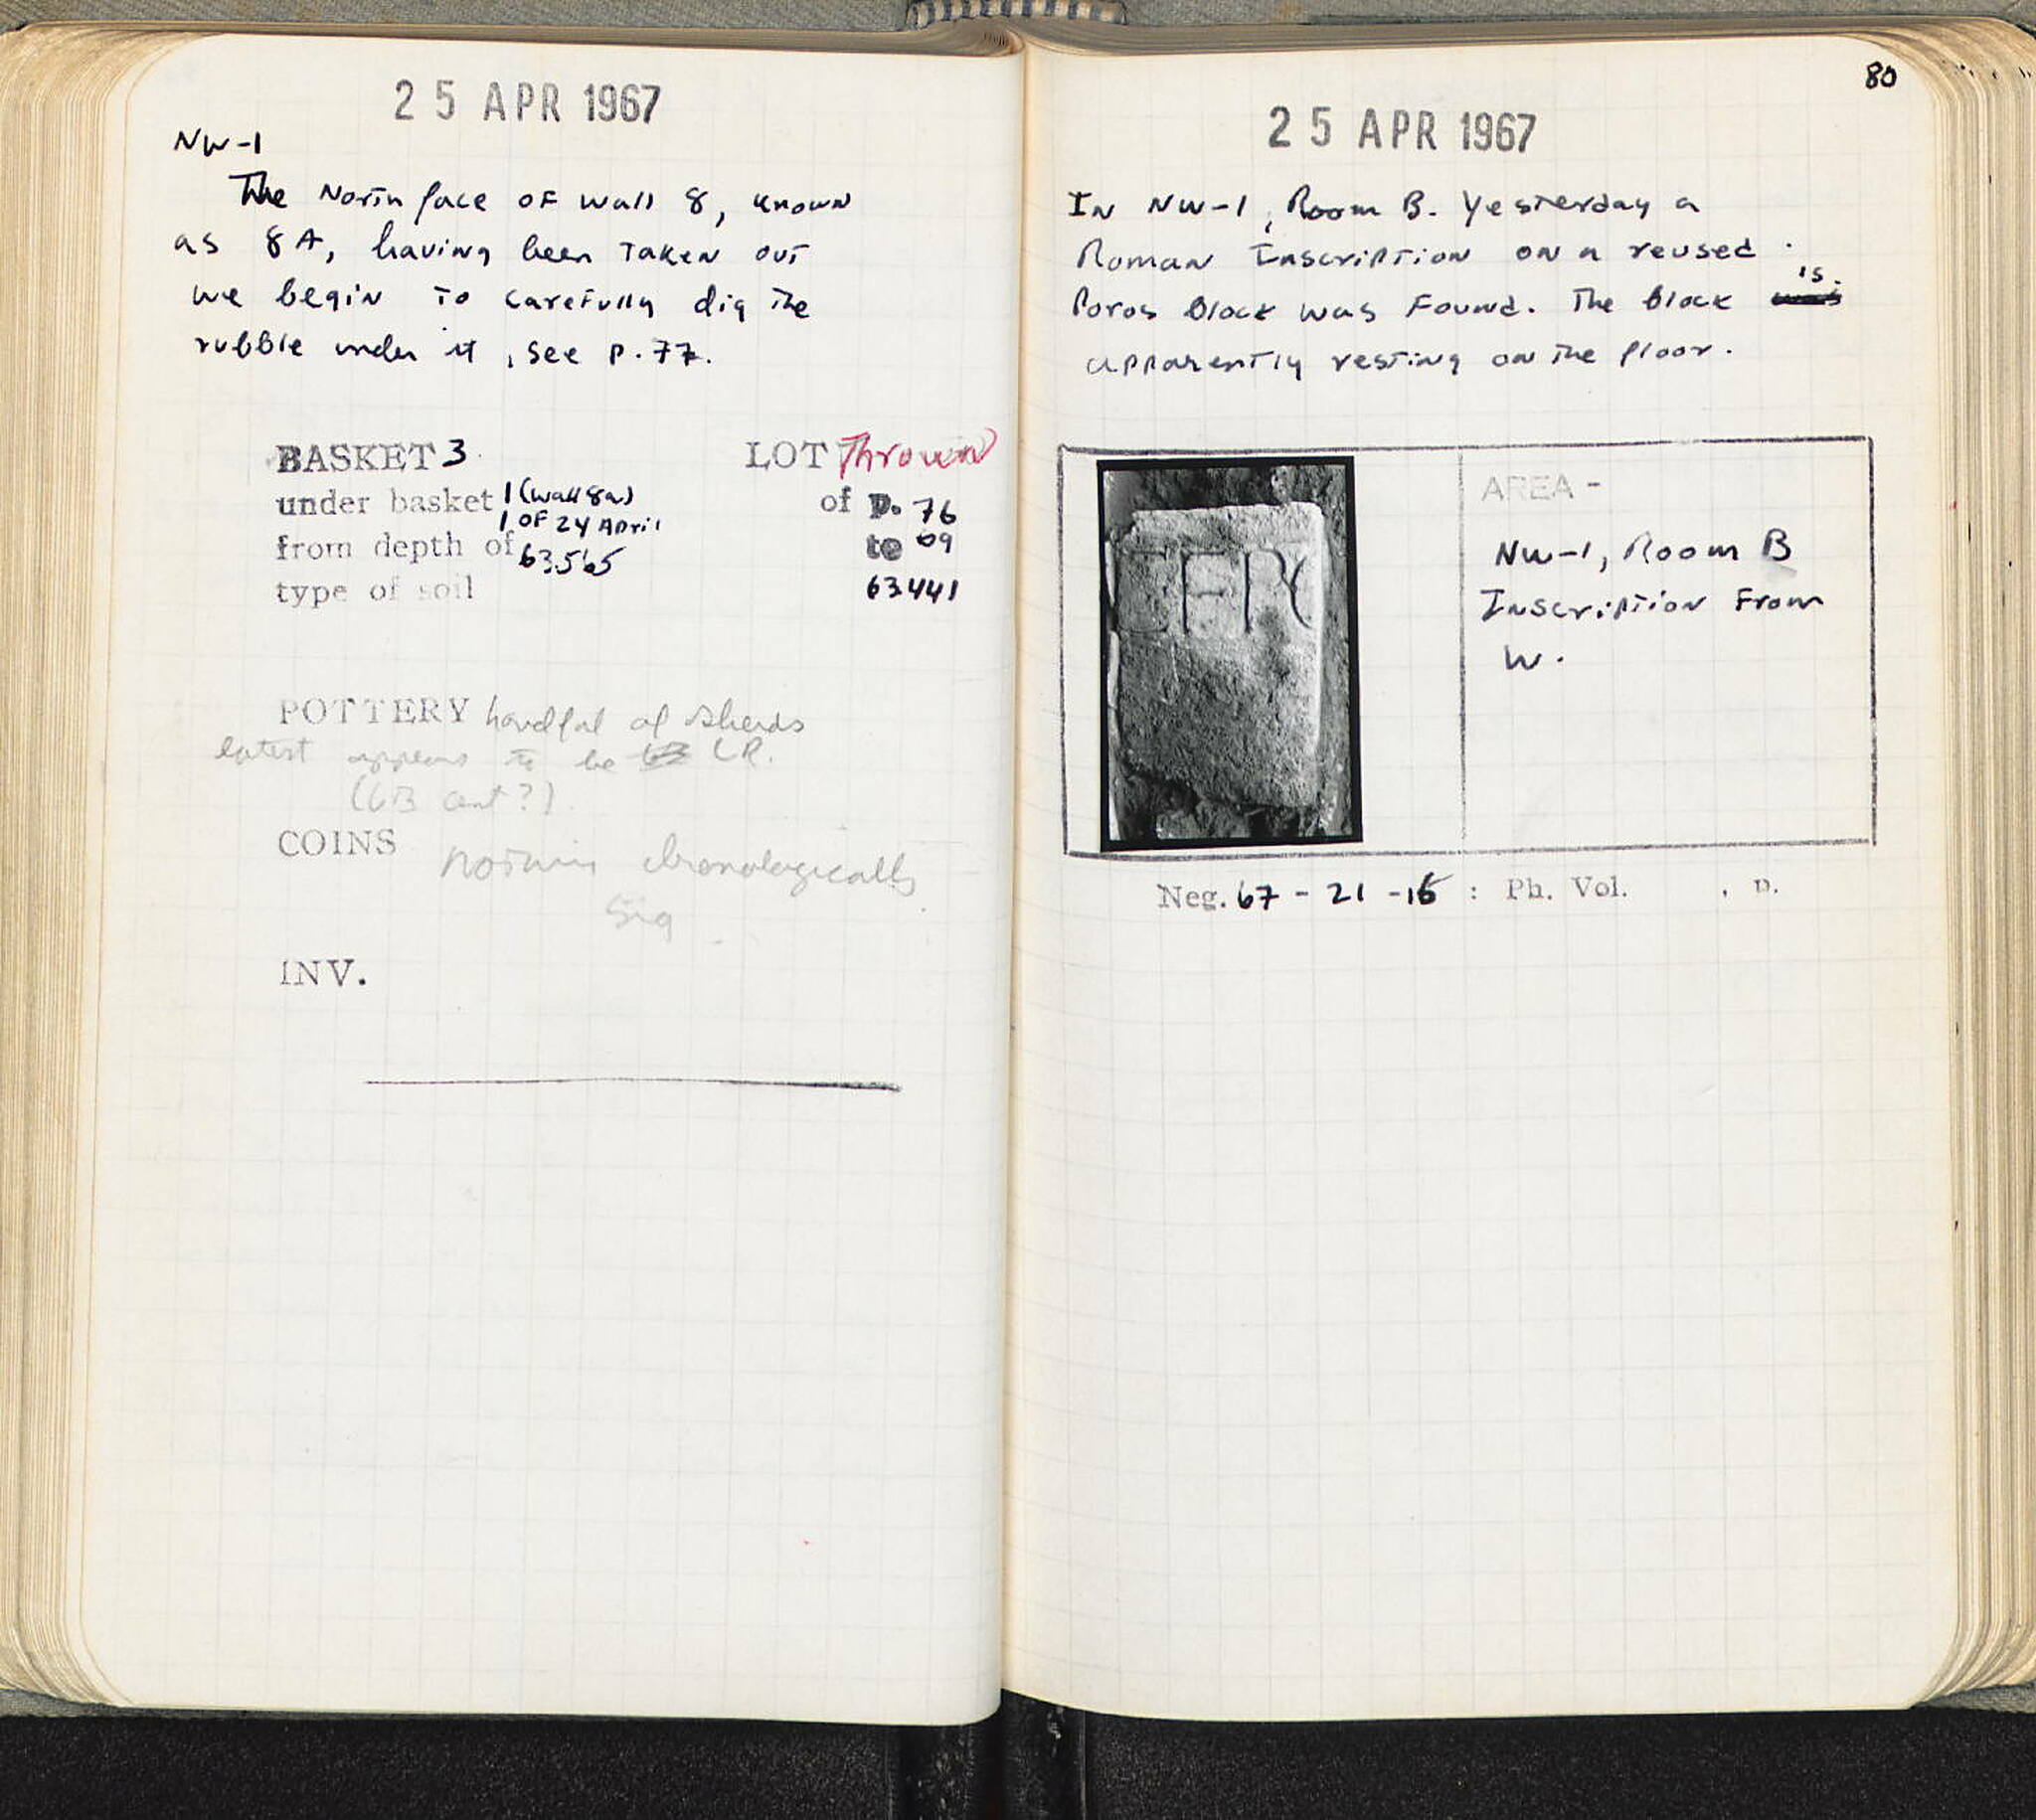 25 APR 1967
NW-1
The North face of wall 8, known
as 8A, having been taken out
we begin to carefully dig the
rubble under it, see p. 77.
BASKET 3
LOT Thrown
under basket 1 (wall 8a)
of p. 76
1 of 24 April
from depth of 63.565
to
type of soil
63.441
POTTERY handful of sherds
latest appears to be LR.
cent?)
COINS
chronologically
Sig
INV.
80
25 APR 1967
In NW-1, Room B. Yesterday a
Roman Inscription on a reused
is
Poros block was found. The block was
apparently resting on the floor.
EPC
AREA -
NW-1, Room B
Inscription From
W.
Neg. 67 - 21 - : Ph. Vol. , p.